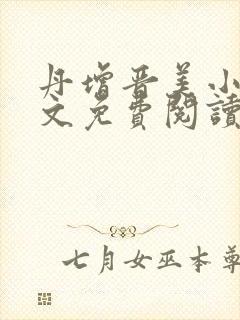 丹增晋美小
文免費閱讀
七月女巫本尊